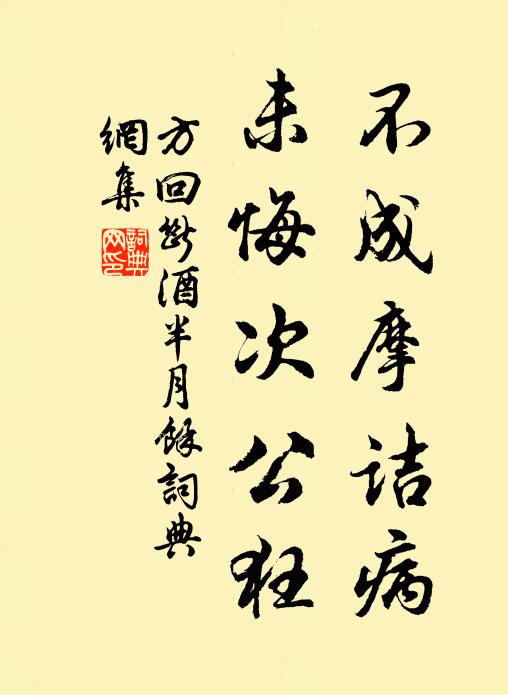 不成摩诘病
未悔次公狂
方回断酒半月馀詞典
網集
詞典
网印